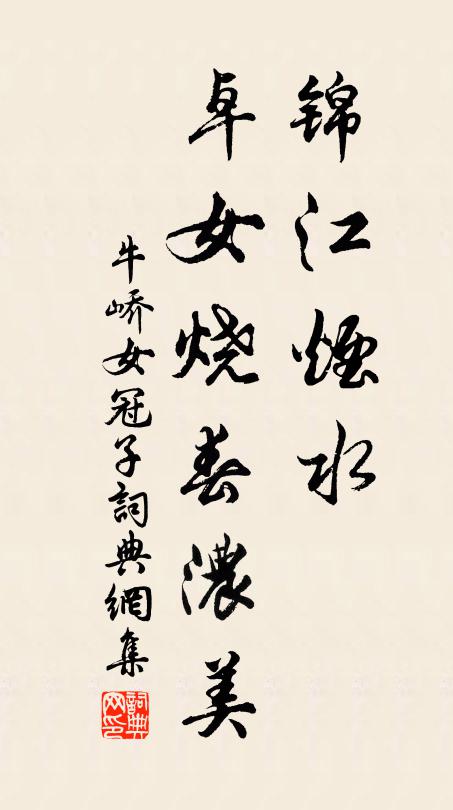 锦江煙水
卓女烧春濃美
牛嶠女冠子詞典網集
詞典网印